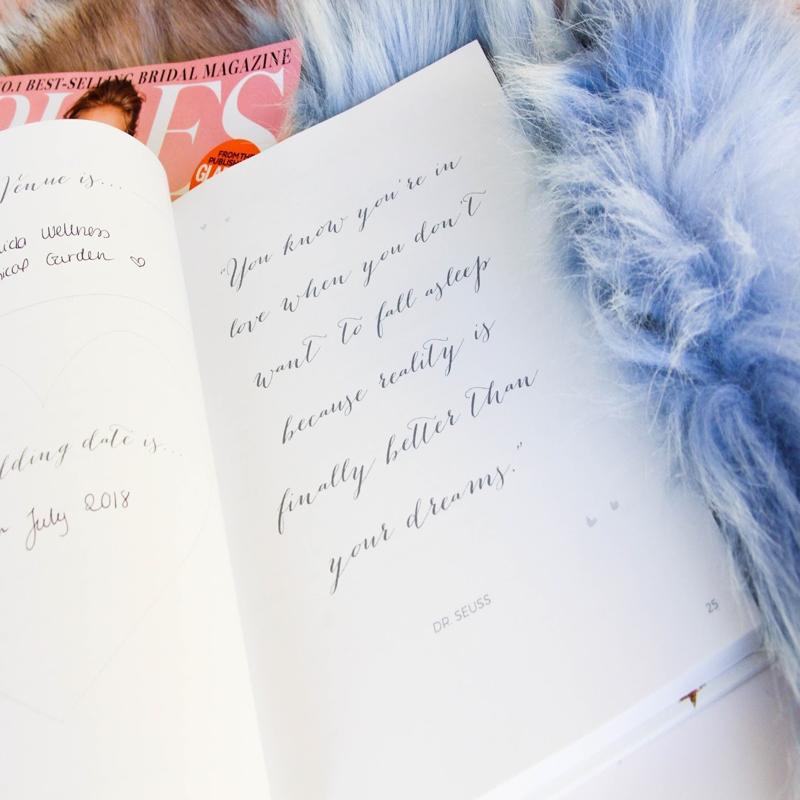 NO.1 BEST-SELLING BRIDAL MAGAZINE
FROM THE
Venue is...
Wellness
Garden ♡
date is...
July 2018
"You know you're in
love when you don't
want to fall asleep
because reality is
finally better than
your dreams."
DR. SEUSS
25